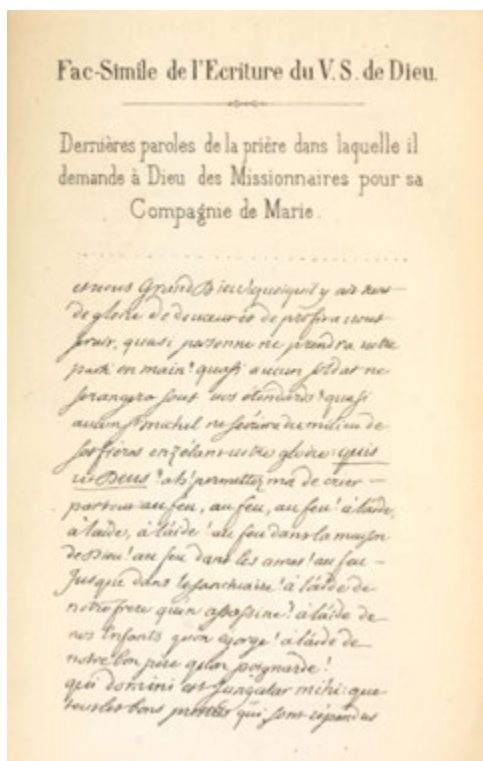 Fac-Simile de l'Ecriture du V. S. de Dieu.
Dernières paroles de la prière dans laquelle il
demande à Dieu des Missionnaires pour sa
Compagnie de Marie.
et vous Grand Dieu! quoiquil y ait tant
de gloire de douceur et de profit a vous
servir, quasi personne ne prendra votre
parti en main? quasi aucun soldat ne
se rangera sous vos étendards? quasi
aucun St michel ne du milieu de
ses freres en zélant votre gloire: quis
ut Deus? ah! permettez moi de crier
partout au feu, au feu, au feu! a l'aide,
a l'aide, a l'aide! au feu dans la maison
de Dieu! au feu dans les ames! au feu
jusque dans le sanctuaire! a l'aide de
notre frere qu'on assassine! a l'aide de
nos enfants qu'on egorge! a l'aide de
notre bon père qu'on poignarde!
qui domini est jungatur mihi: que
tous les bons prêtres qui sont répandus